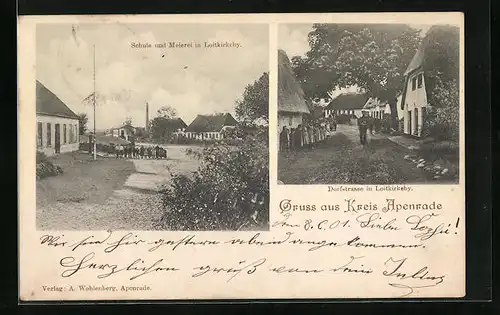 Schule und Meierei in Loitkirkeby.
Dorfstrasse in Loitkirkeby.
Gruss aus Kreis Apenrade
den 8.6.01. Lieber
Wir sind hier gestern abend angekommen.
Herzlichen gruß von dem
Verlag: A. Wohlenberg, Apenrade.